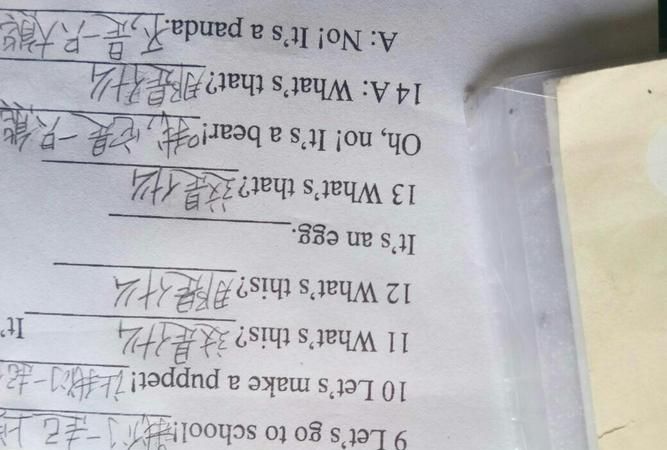 9 Let's go to school! 我们一起上
10 Let's make a puppet! 让我们一起
11 What's this? 这是什么 It'
12 What's this? 那是什么
It's an egg.
13 What's that? 这是什么
Oh, no! It's a bear! 哦,它是一只熊
14 A: What's that? 那是什么
A: No! It's a panda. 不,是一只大熊